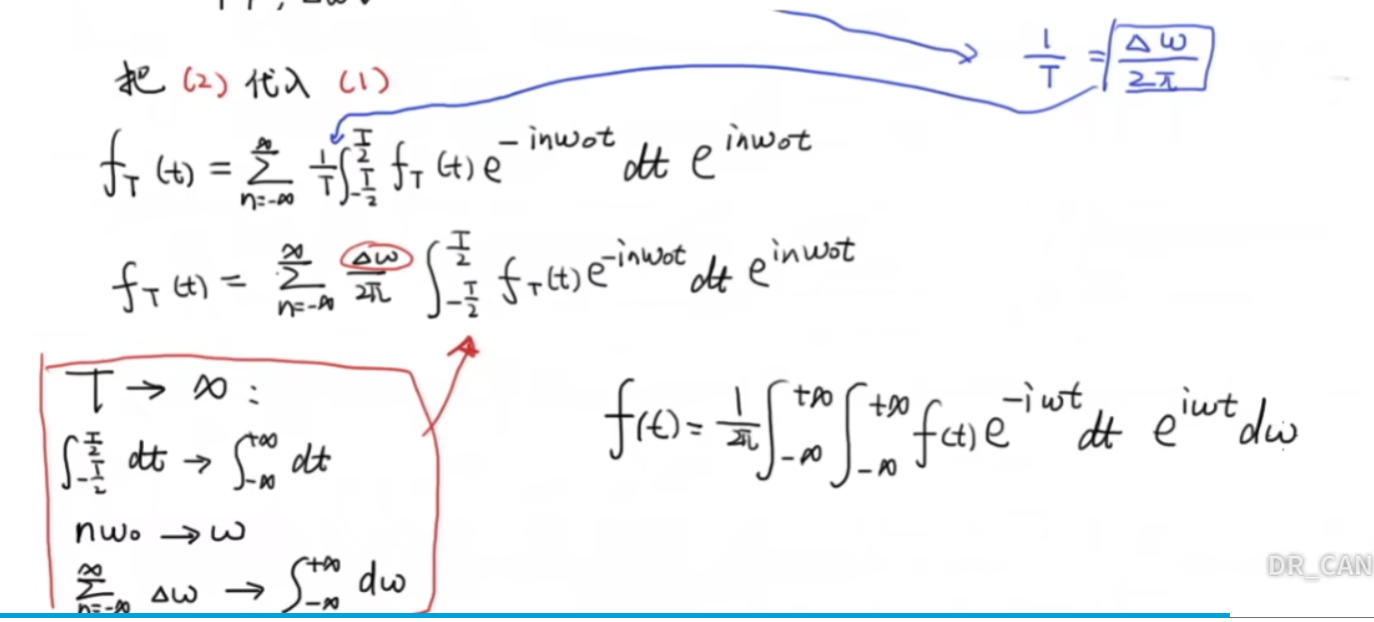 1/T = Δω/2π
把 (2) 代入 (1)
f_T(t) = ∑_{n=-∞}^{∞} 1/T ∫_{-T/2}^{T/2} f_T(t) e^{-inω₀t} dt e^{inω₀t}
f_T(t) = ∑_{n=-∞}^{∞} Δω/2π ∫_{-T/2}^{T/2} f_T(t) e^{-inω₀t} dt e^{inω₀t}
T → ∞ :
∫_{-T/2}^{T/2} dt → ∫_{-∞}^{+∞} dt
nω₀ → ω
∑_{n=-∞}^{∞} Δω → ∫_{-∞}^{+∞} dω
f(t) = 1/2π ∫_{-∞}^{+∞} ∫_{-∞}^{+∞} f(t) e^{-iωt} dt e^{iωt} dω
DR_CAN